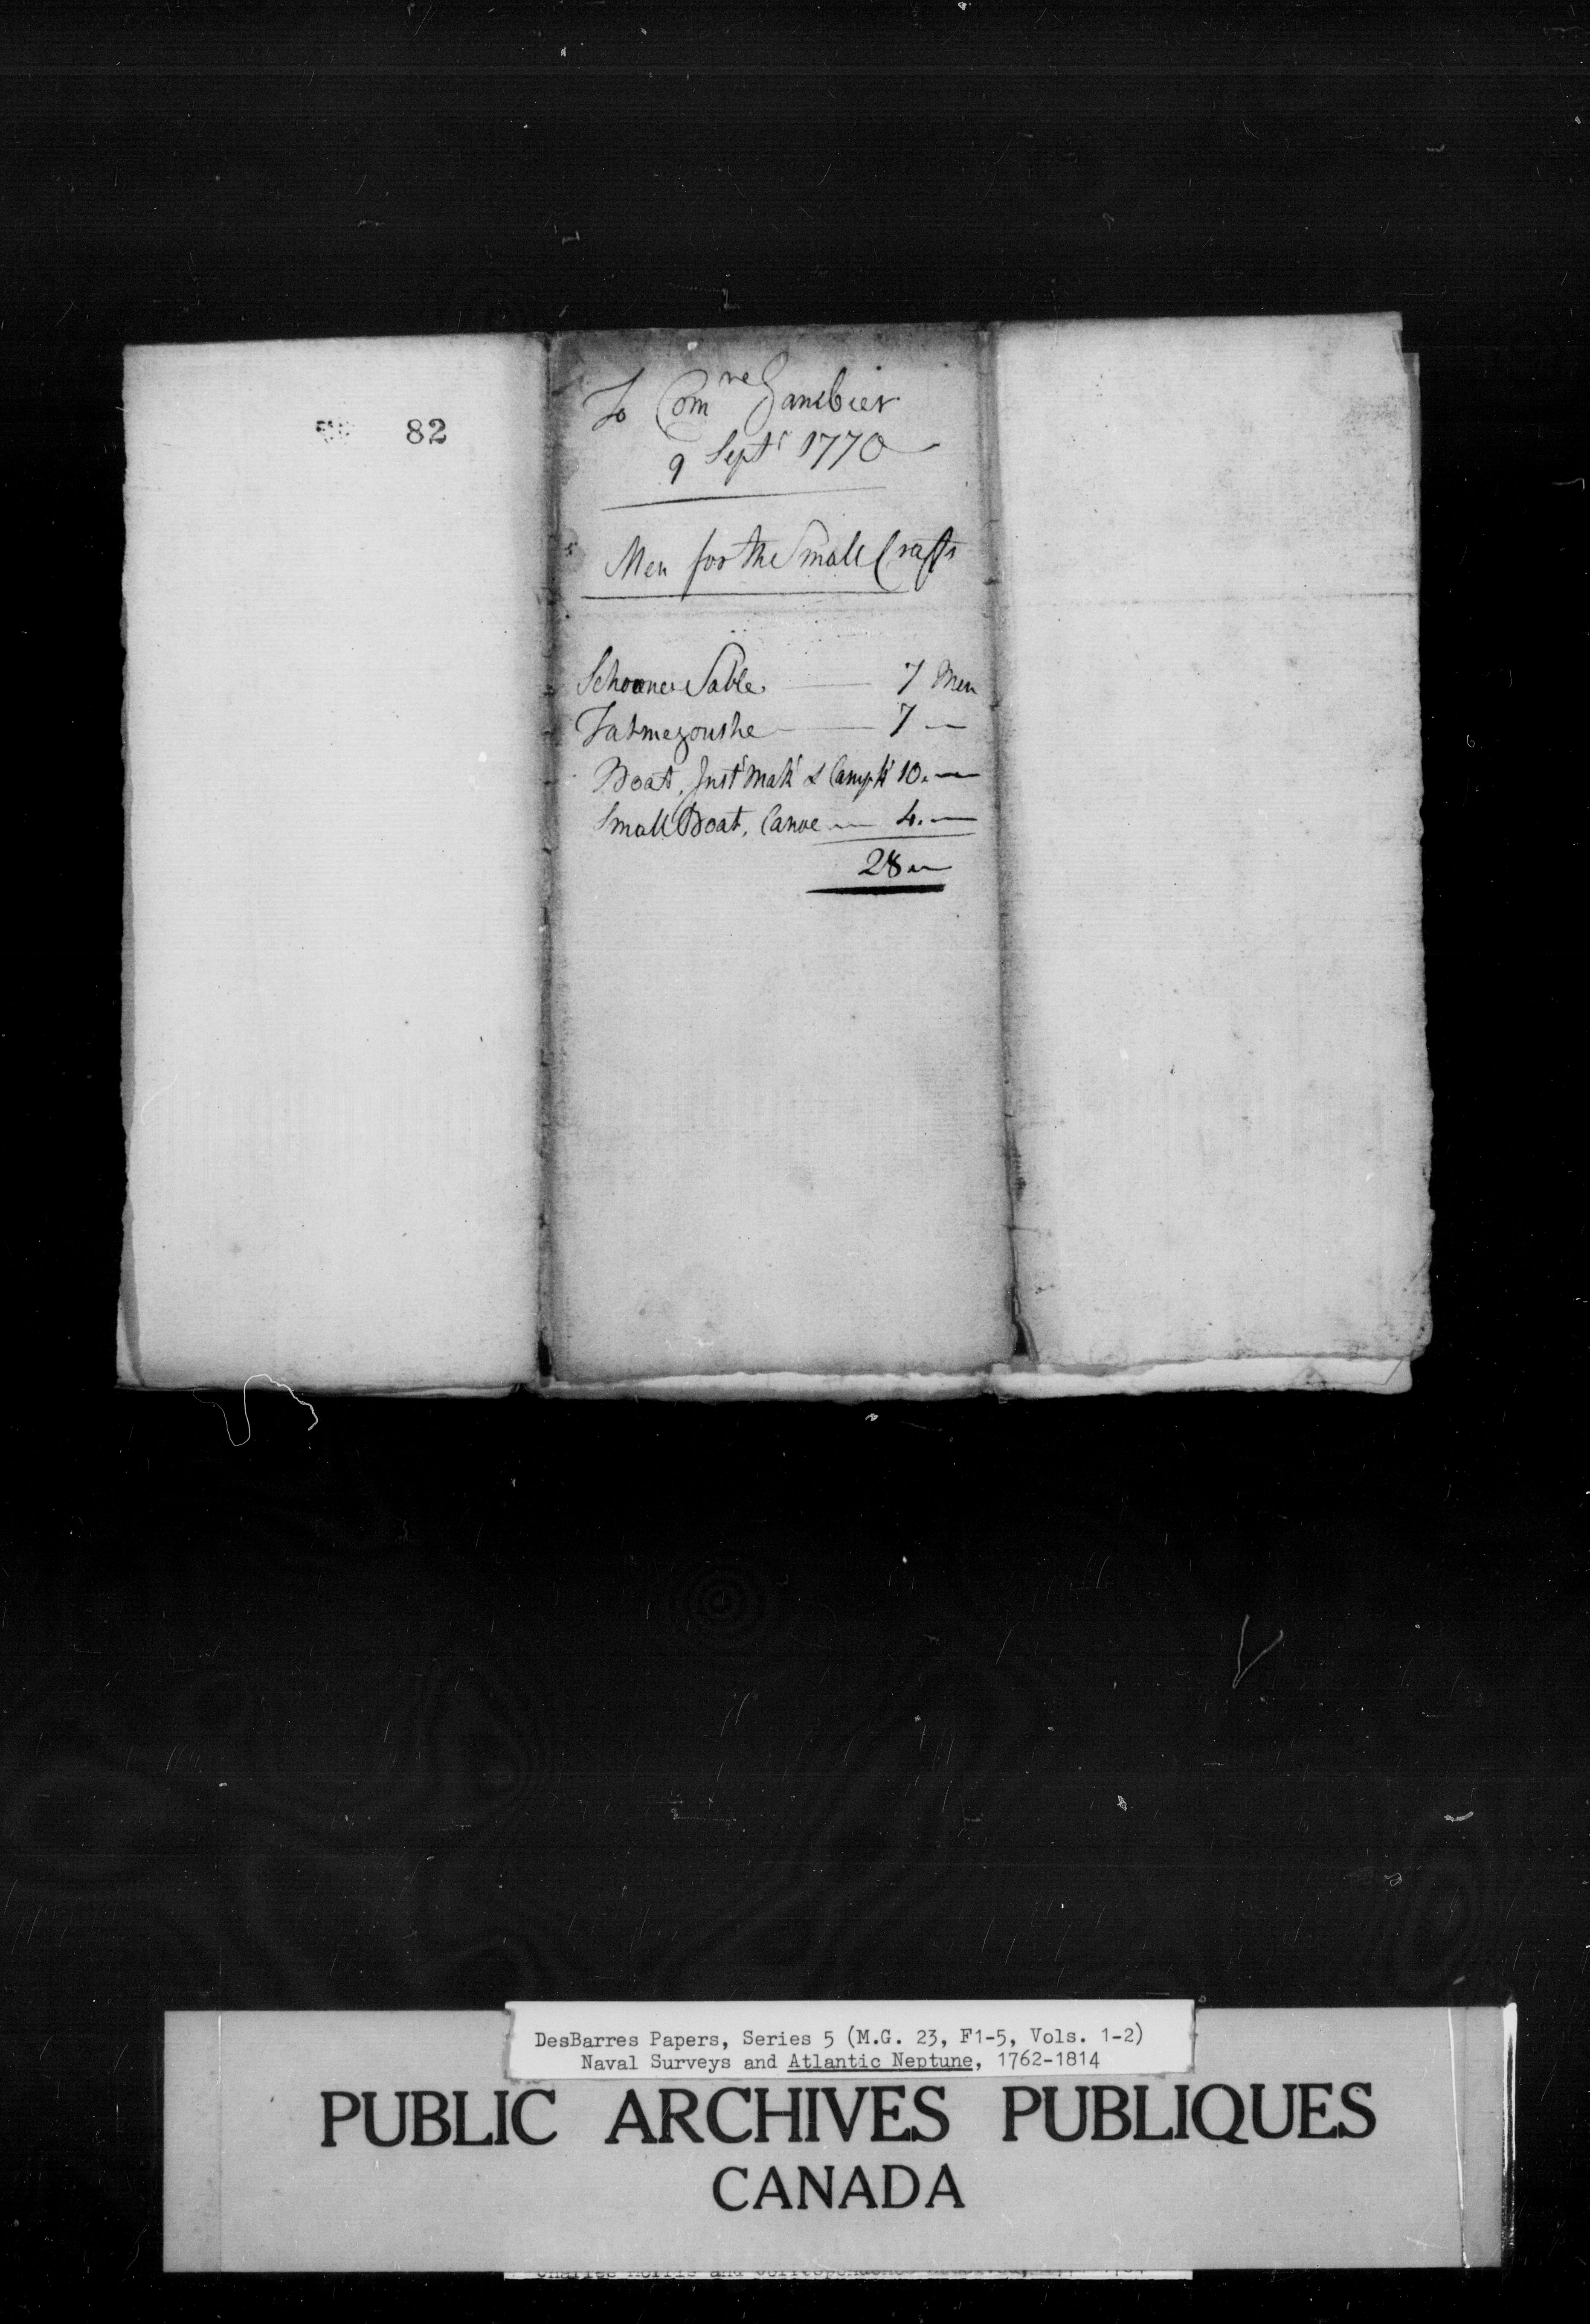 82
To Com^re Gambier
9 Sept^r 1770
Men for the Small Crafts
Schooner Sable 7 Men
Tatmagoushe 7 —
Boat, Inst^s Mat^s & Camp 10. —
Small Boat, Canoe — 4. —
28 —
DesBarres Papers, Series 5 (M.G. 23, F1-5, Vols. 1-2)
Naval Surveys and Atlantic Neptune, 1762-1814
PUBLIC ARCHIVES PUBLIQUES
CANADA